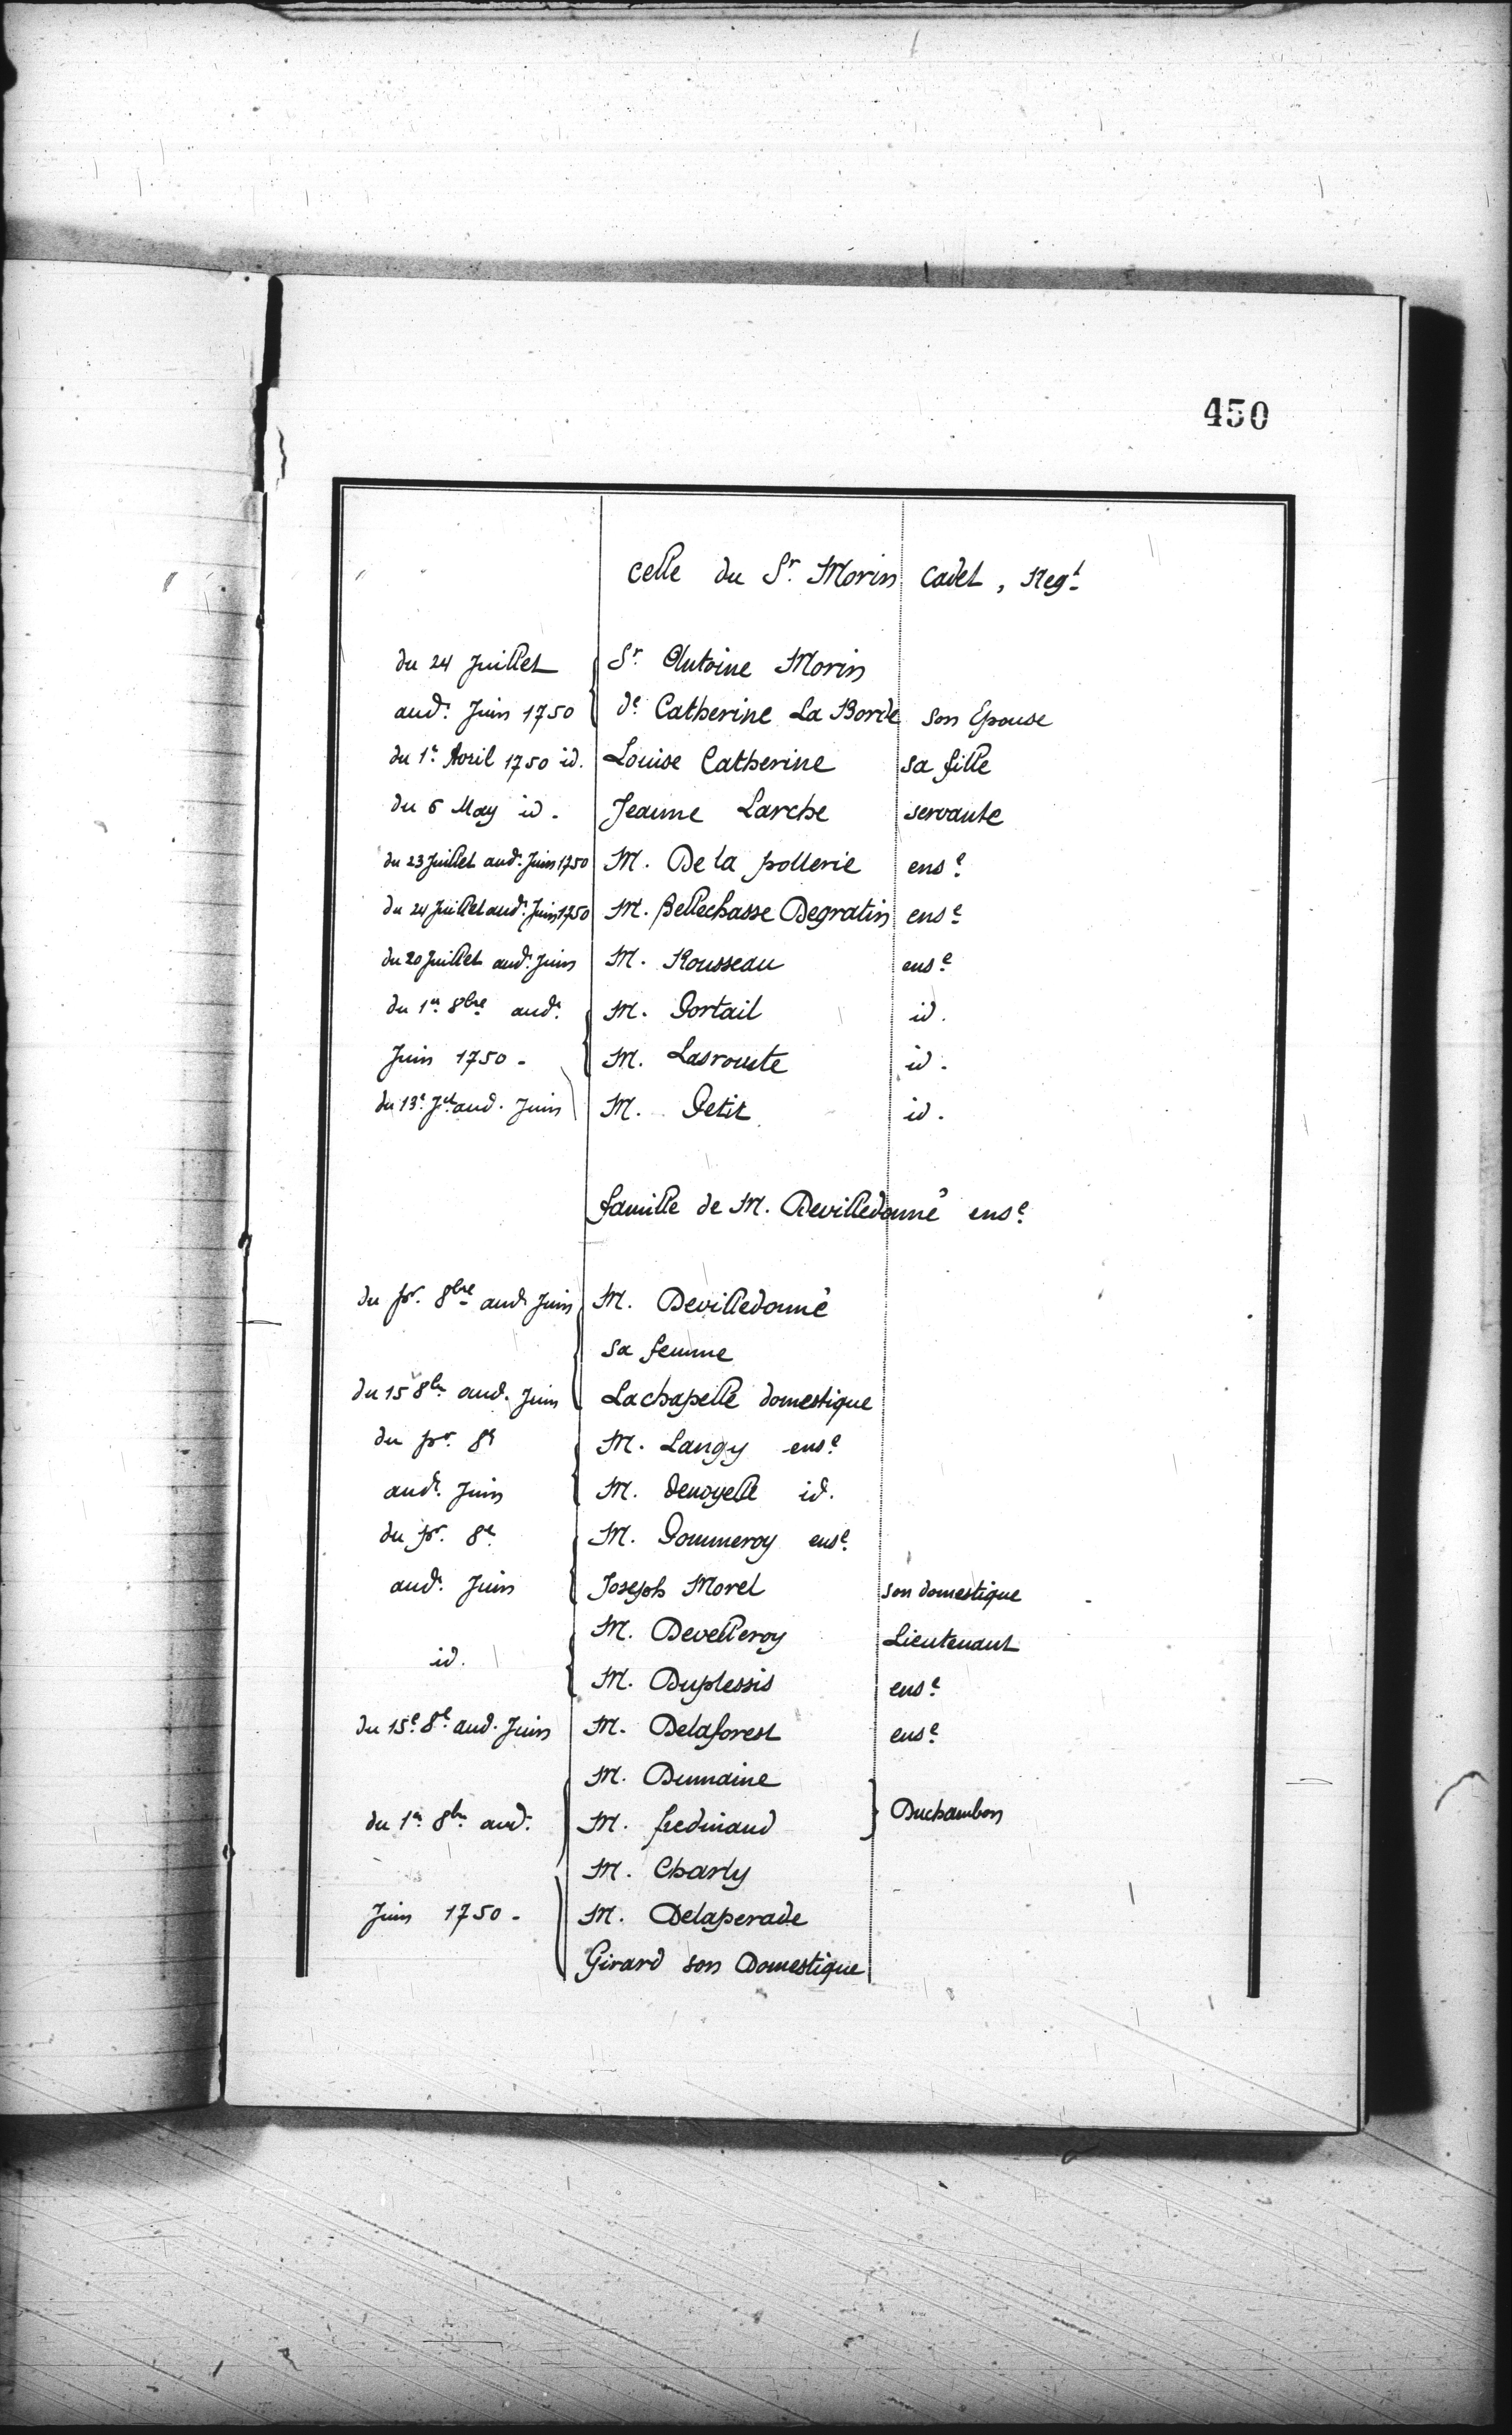 450
celle du Sr. Morin Cadet, Negt
du 24 Juillet Sr. Antoine Morin
aud. Juin 1750 de Catherine La Borde son Epouse
du 1er Avril 1750 id. Louise Catherine sa fille
du 6 May id. Jeanne Larche servante
du 23 Juillet aud. Juin 1750 M. De la potterie ense
du 24 Juillet aud. Juin 1750 M. Bellechasse Degratin ense
du 20 Juillet aud. Juin M. Rousseau ense
du 1er 8bre aud. M. Portail id.
Juin 1750 - M. Lasronte id.
du 13e Jet aud. Juin M. Petit id.
famille de M. Devilledonné ense
du pr. 8bre aud. Juin M. Devilledonné
sa femme
du 15 8bre aud. Juin Lachapelle domestique
du pr. 8e M. Langy ense
aud. Juin M. denoyelle id.
du pr. 8e M. Pommeroy ense
aud. Juin Joseph Morel son domestique
M. Develleroy Lieutenant
id.
M. Duplessis ense
du 15e 8e aud. Juin M. Delaforest ense
M. Dumaine
du 1er 8bre aud. M. fredinand Duchambon
M. Charly
Juin 1750 - M. Delaperade
Girard son Domestique